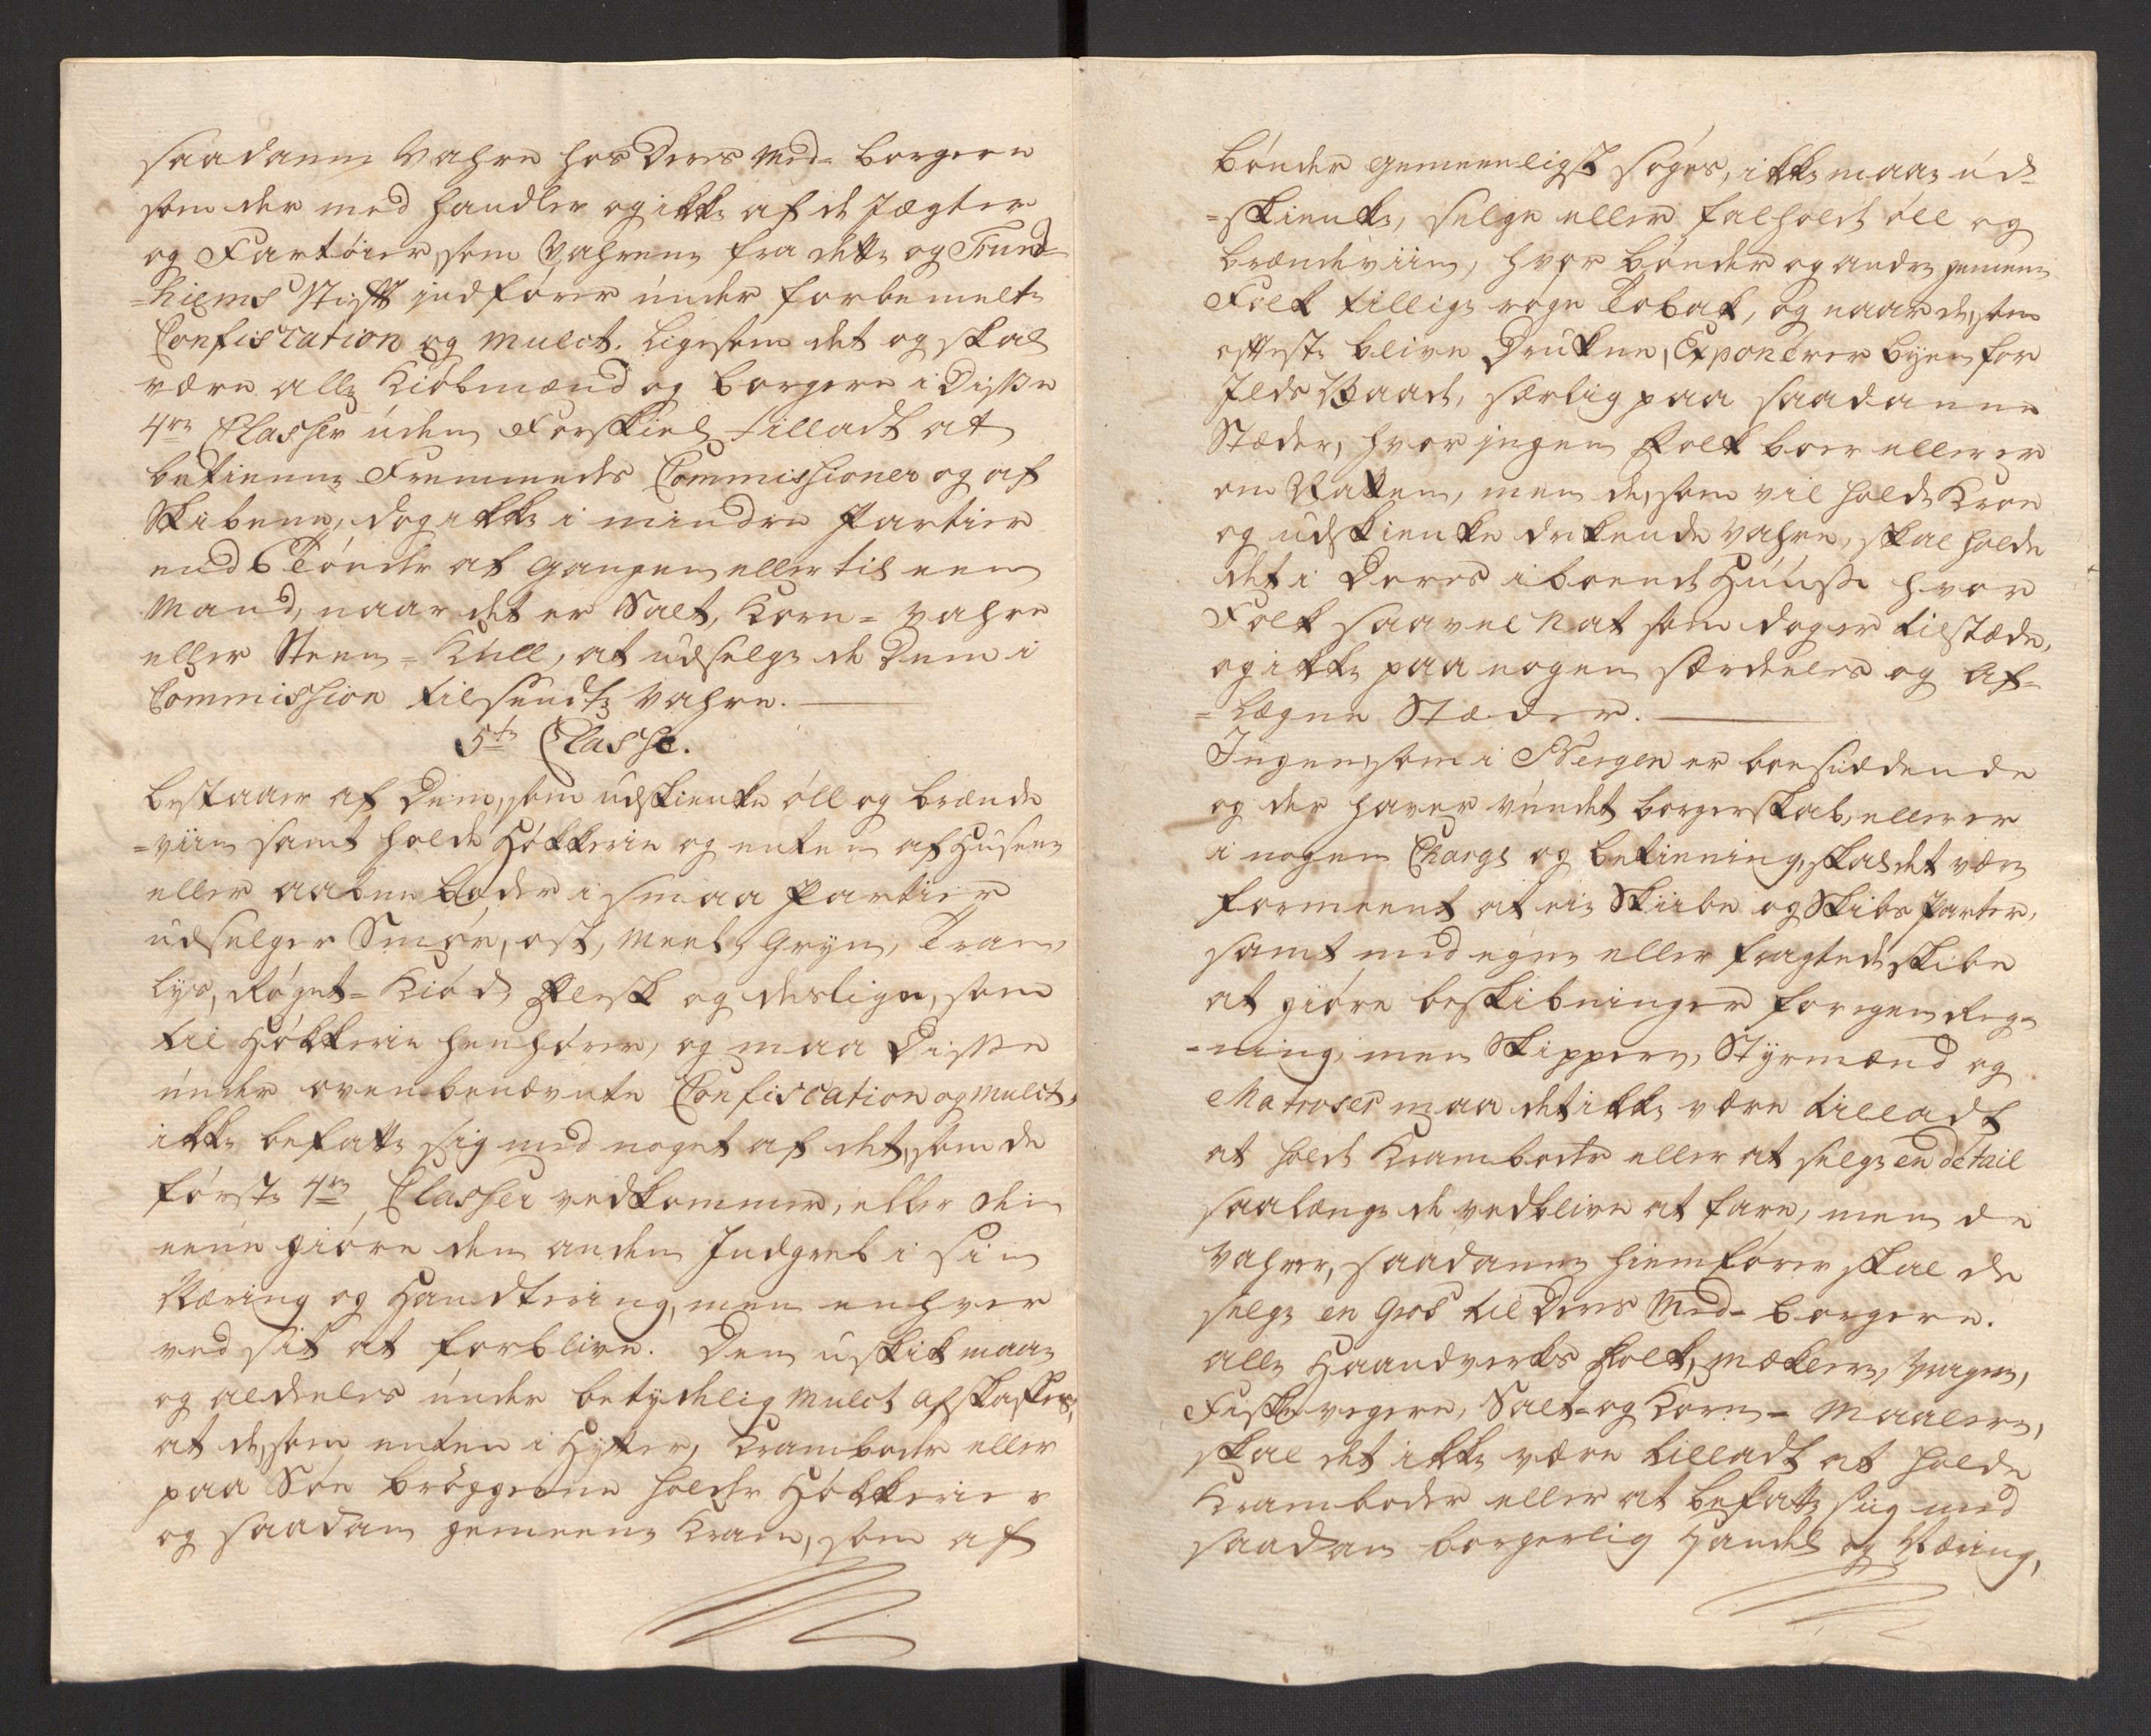 saadanne Vahre hos Deres Med= borgere
som der med handler og ikke af de Jægter
og Fartöier, som Vahrene fra dette og Trund=
=hiems Stift indförer under forbemelte
Confiscation og Mulct. Ligesom det og skal
være alle Kiöbmænd og borgere i Disse
4re Classer uden Forskiel tilladt at
betienne Fremmedes Commissioner og af
Skibene, dog ikke i mindre Partier
end 6 Tönder at Gangen eller til een
Mand, naar det er Salt, Korn= Vahre
eller Steen= Kull, at udselge de Dem i
Commission tilsendte Vahre.
5te Classe.
bestaaer af Dem, som udskienke öll og brænde
=viin samt holde Hökkerie og enten af Husene
eller aabne boder i smaa Partier
udselger Smör, ost, Meel, Gryn, Tran,
Lys, Röget= Kiöd, Flesk og deslige, som
til Hökkerie henhörer, og maa Disse
under ovenbenævnte Confiscation og Mulct,
ikke befatte sig med noget af det, som de
förste 4re Classer vedkommer, eller den
eene giöre den anden Indgreb i sin
Næring og Handtering, men enhver
ved sit at forblive. Den uskik maae
og aldeeles under betydelig Mulct afskaffes,
at de, som enten i Hytter, Kramboder eller
paa Söe bryggerne holder Hökkerier
og saadan gemeene Kram, som af
bönder gemeenligst söges, ikke maae ud=
=skienke, selge eller falholde öll og
brændeviin, hvor bönder og andre gemeene
Folk tillige röge Tobak, og naar de, som
oftest blive Drukne, Exponerer byen for
Ilds Vaade, særlig paa saadanne
Stæder, hvor ingen Folk boer eller er
om Natten, men de, som vil holde Kroe
og udskienke drikende Vahre, skal holde
det i Deres iboende Huuse hvor
Folk saavel Nat som dag er tilstæde,
og ikke paa nogen særdeeles og af=
=lægne Stæder.
Ingen, som i Bergen er boesiddende
og der haver vundet borgerskab, eller er
i nogen Charge og betiening, skal det være
formeent at eie Skiibe og Skibs Parter,
samt med egne eller fragtede skibe
at giöre beskibninger for egen Reg=
=ning, men Skippere, Styrmænd og
Matroser maa det ikke være tilladt
at holde Kramboder eller at selge en détail
saalænge de vedblive at fare, men de
Vahrer, saadanne hiemförer skal de
selge en Gros til Deres Med= borgere.
alle Haandverks Folk, Mæklere, Vragere,
Fiske vegere, Salt= og Korn= Maalere,
skal det ikke være tilladt at holde
Kramboder eller at befatte sig med
saadan borgerlig Handel og Næring,